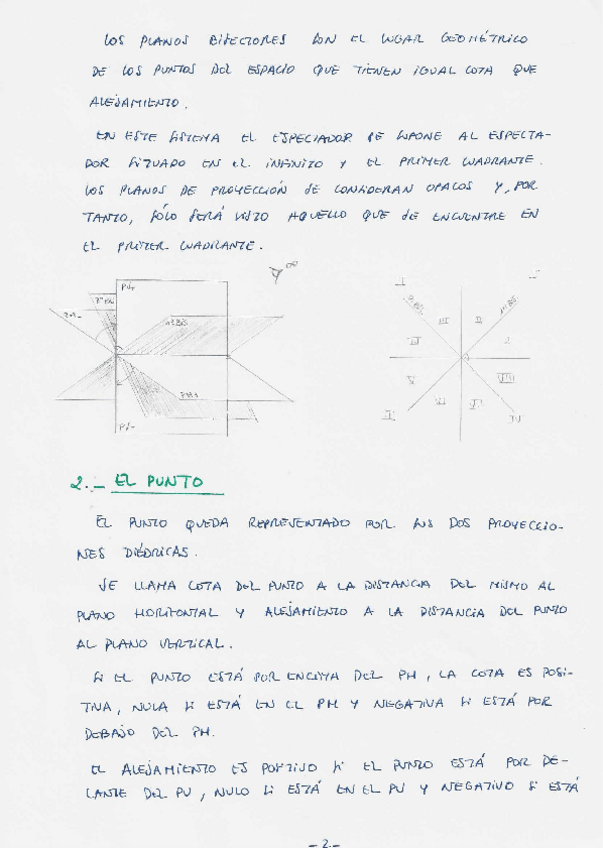 LOS PLANOS BISECTORES SON EL LUGAR GEOMÉTRICO
DE LOS PUNTOS DEL ESPACIO QUE TIENEN IGUAL COTA QUE
ALEJAMIENTO.
EN ESTE SISTEMA EL ESPECTADOR SE SUPONE AL ESPECTA-
DOR SITUADO EN EL INFINITO Y EL PRIMER CUADRANTE.
LOS PLANOS DE PROYECCIÓN SE CONSIDERAN OPACOS Y, POR
TANTO, SÓLO SERÁ VISTO AQUELLO QUE SE ENCUENTRE EN
EL PRIMER CUADRANTE.
∞
PV+
1º Bis
PH+
PV-
I
II
III
II
I
VIII
V
VI
VII
III
IV
2.- EL PUNTO
EL PUNTO QUEDA REPRESENTADO POR SUS DOS PROYECCIO-
NES DIÉDRICAS.
SE LLAMA COTA DEL PUNTO A LA DISTANCIA DEL MISMO AL
PLANO HORIZONTAL Y ALEJAMIENTO A LA DISTANCIA DEL PUNTO
AL PLANO VERTICAL.
SI EL PUNTO ESTÁ POR ENCIMA DEL PH, LA COTA ES POSI-
TIVA, NULA SI ESTÁ EN EL PH Y NEGATIVA SI ESTÁ POR
DEBAJO DEL PH.
EL ALEJAMIENTO ES POSITIVO SI EL PUNTO ESTÁ POR DE-
LANTE DEL PV, NULO SI ESTÁ EN EL PV Y NEGATIVO SI ESTÁ
-2.-